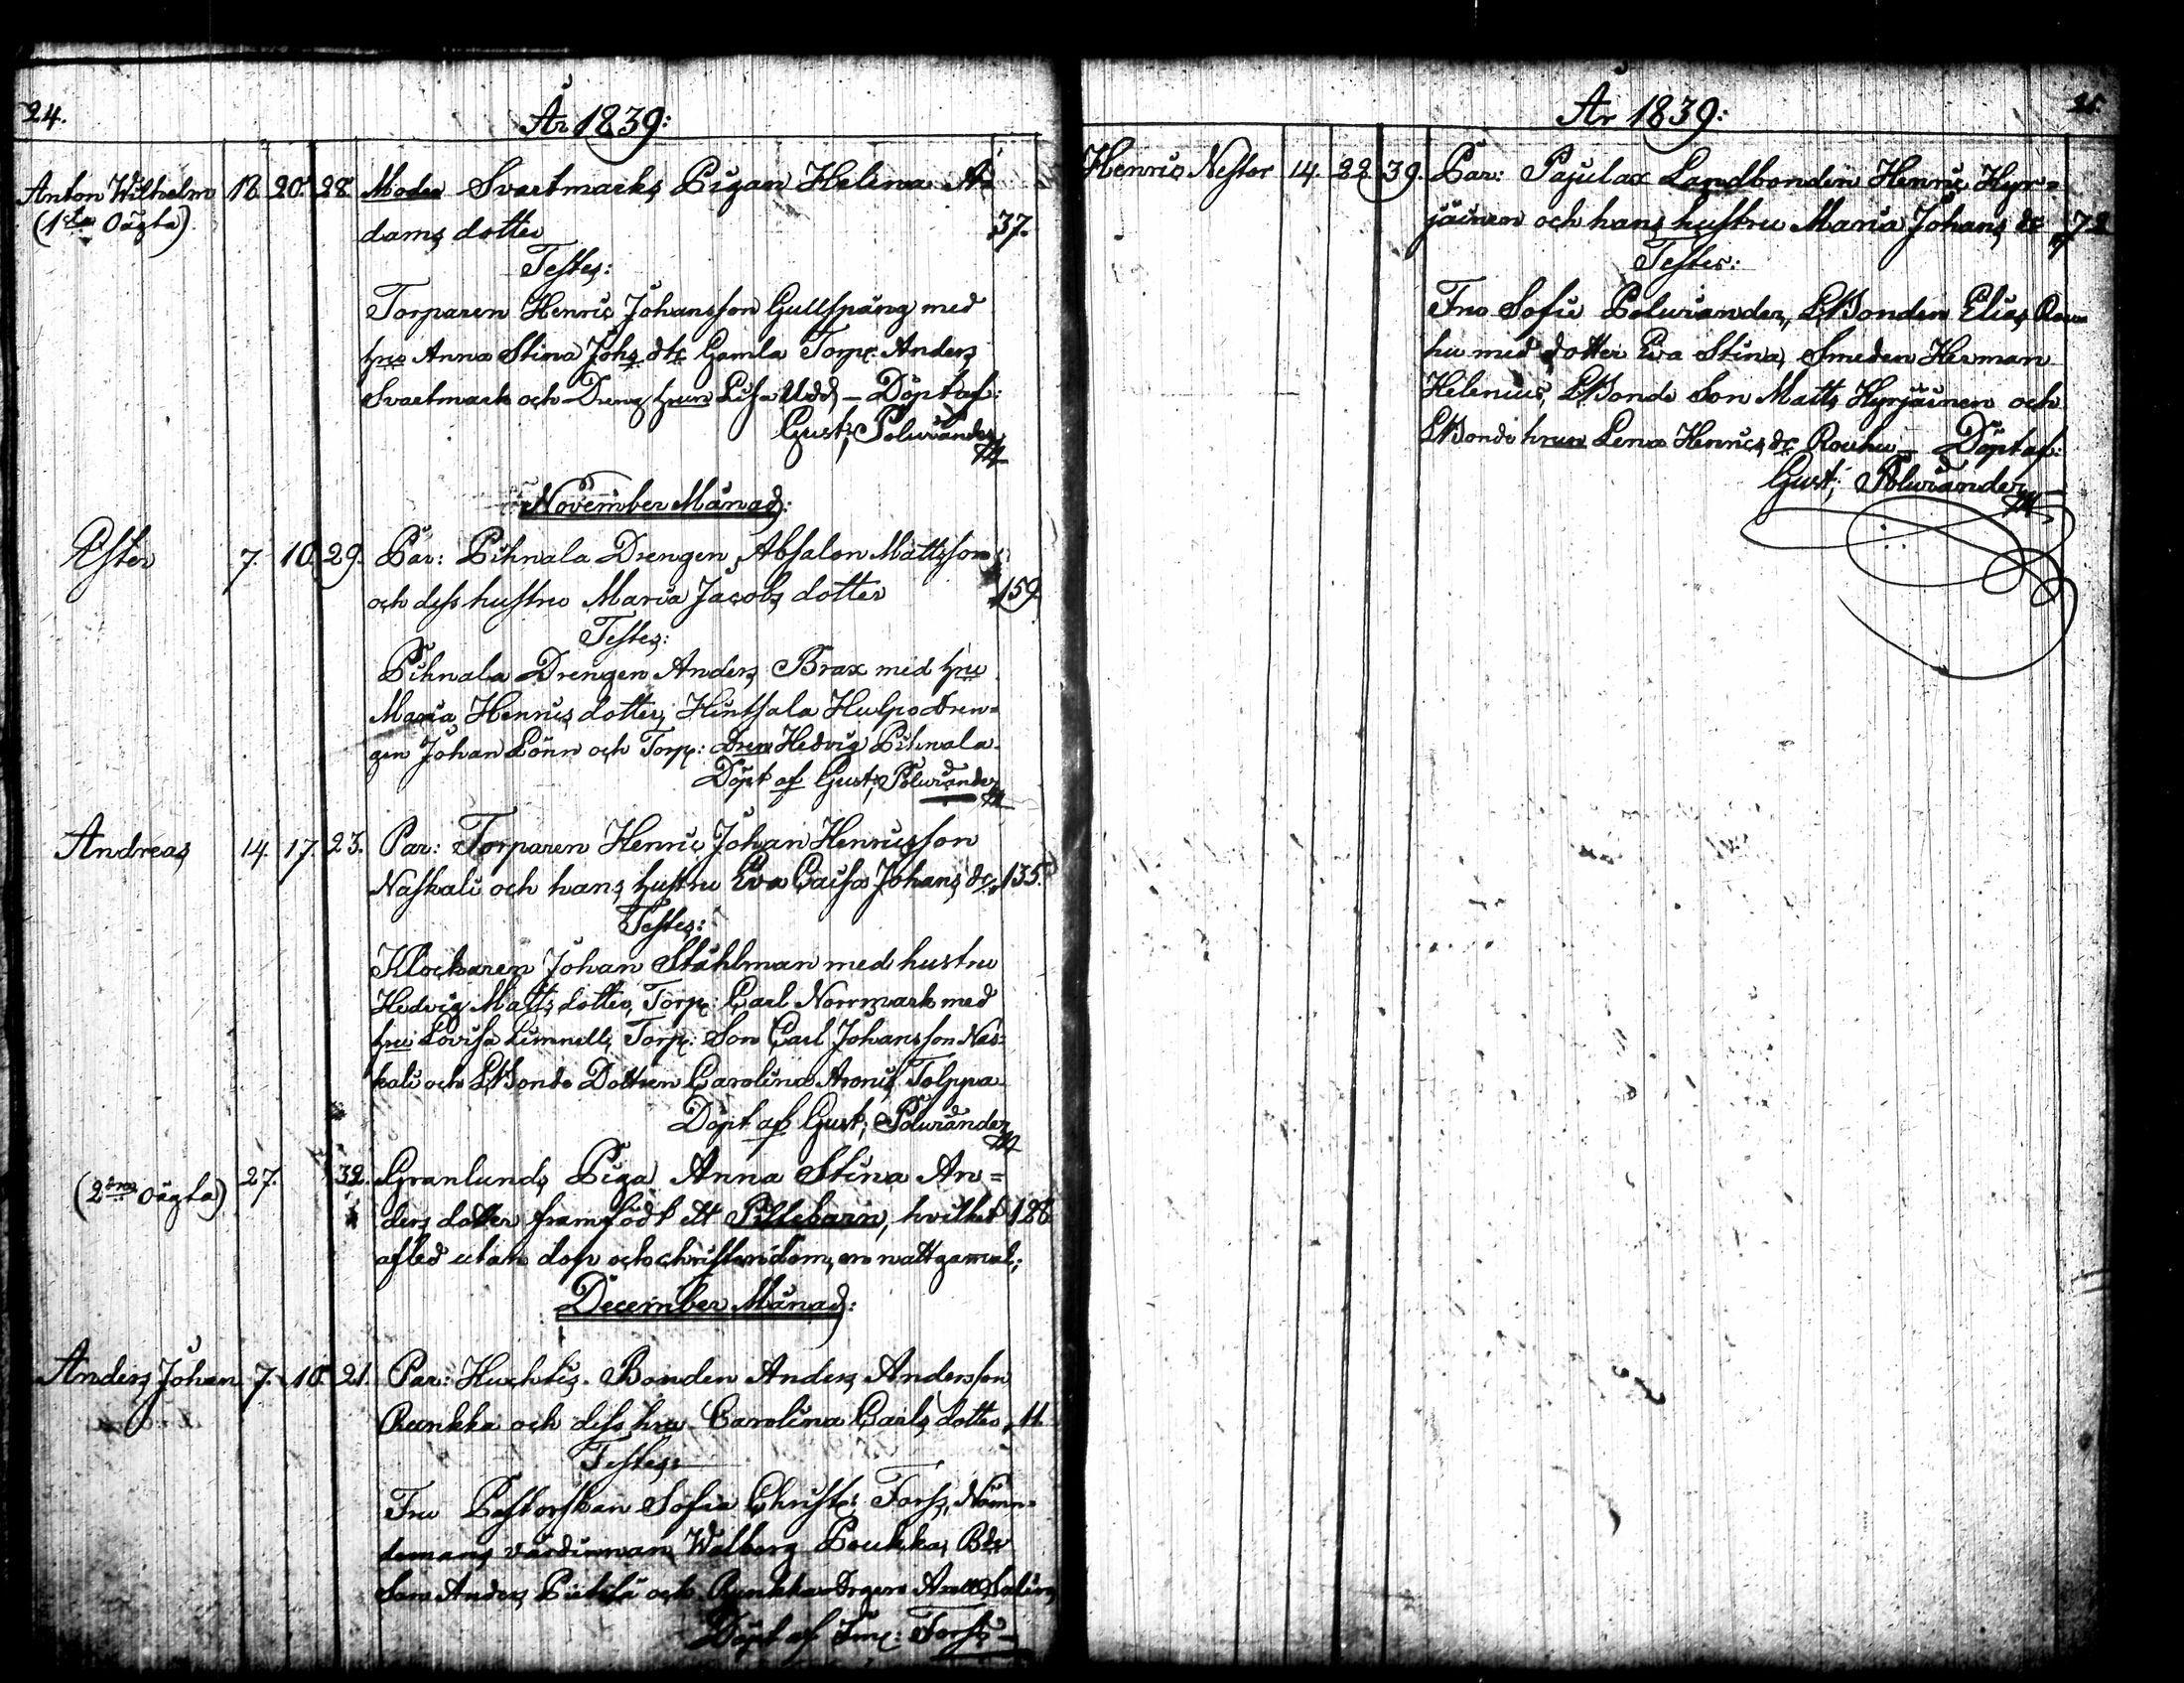 24.
År 1839:
Anton Wilhelm 18. 20. 28. Moder Svartmarks Pigan Helena A=
(1sta Oägta) dams dotter 37.
Testes:
Torparen Henric Johansson Gullspång med
hru Anna Stina Johs dtr Gamla Torp: Anders
Svartmark och Dreng hrun Lisa Udd – Döpt af:
Gust; Polviander
November Månad:
Ester 7. 10. 29. Par: Pihnala Drengen Absalon Mattsson
och dess hustru Maria Jacobs dotter 159.
Testes:
Pihnala Drengen Anders Brax med hru
Maria Henrics dotter, Hintsala Hulpo dren=
gen Johan Lönn och Torp: Hedvig Pihnala.
Döpt af Gust; Polviander
Andreas 14. 17. 23. Par: Torparen Henric Johan Henricsson
Naskali och hans hustru Eva Caisa Johans dr 135.
Testes:
Klockaren Johan Ståhlman med hustru
Hedvig Matts dotter, Torp: Carl Norrmark med
hru Lovisa Linnell, Torp: Son Carl Johansson Nas=
kali och LBonde Dottren Carolina Tolppa.
Döpt af Gust; Polviander
(2dra Oägta) 27. 32. Granlunds Piga Anna Stina An=
ders dotter framfödt ett Piltebarn, hvilket 128
afled utan dop och christendom, en natt gamal;
December Månad:
Anders Johan 7. 10. 21. Par: Huchtis Bonden Anders Andersson
Runkka och dess hru Carolina Carls dotter 11.
Testes:
Fru Pastorskan Sofia Christ: Forss, Nämn=
demans värdinnan Walborg Poukka,
Son Anders och Runkka
Döpt af Forss –
25.
År 1839:
Henric Nestor 14. 22. 39. Par: Pajulax Landbonden Henric Hyr=
jäinen och hans hustru Maria Johans dr 72
Testes:
Fru Sofie Polviander, LBonden Elias Rou
hu med dotter Eva Stina, Smeden Herman
Helenius, LBonde Son Matts Hyrjäinen och
LBonde hrun Lena Henrics dr Rouhu – Döpt af:
Gust; Polviander